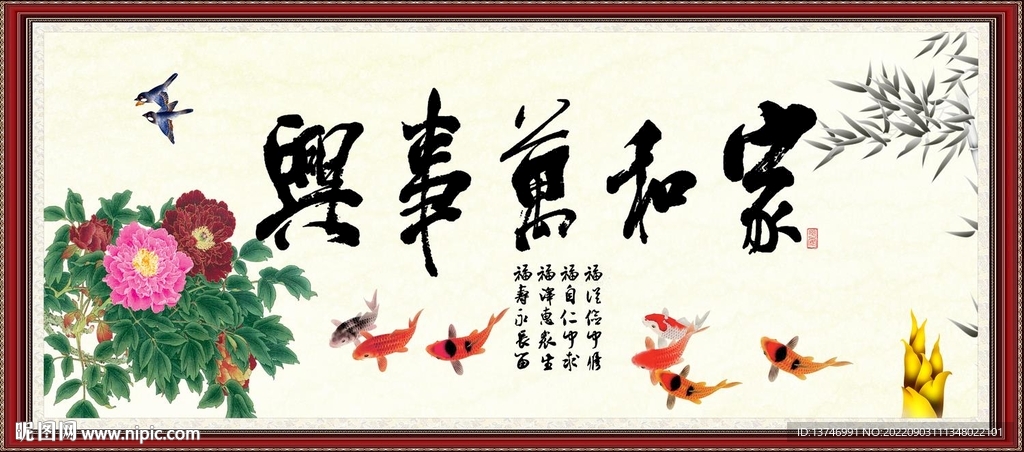 家和萬事興
福從信中修
福自仁中求
福澤惠衆生
福壽永長留
昵图网 www.nipic.com
ID:13746991 NO:20220903111348022101